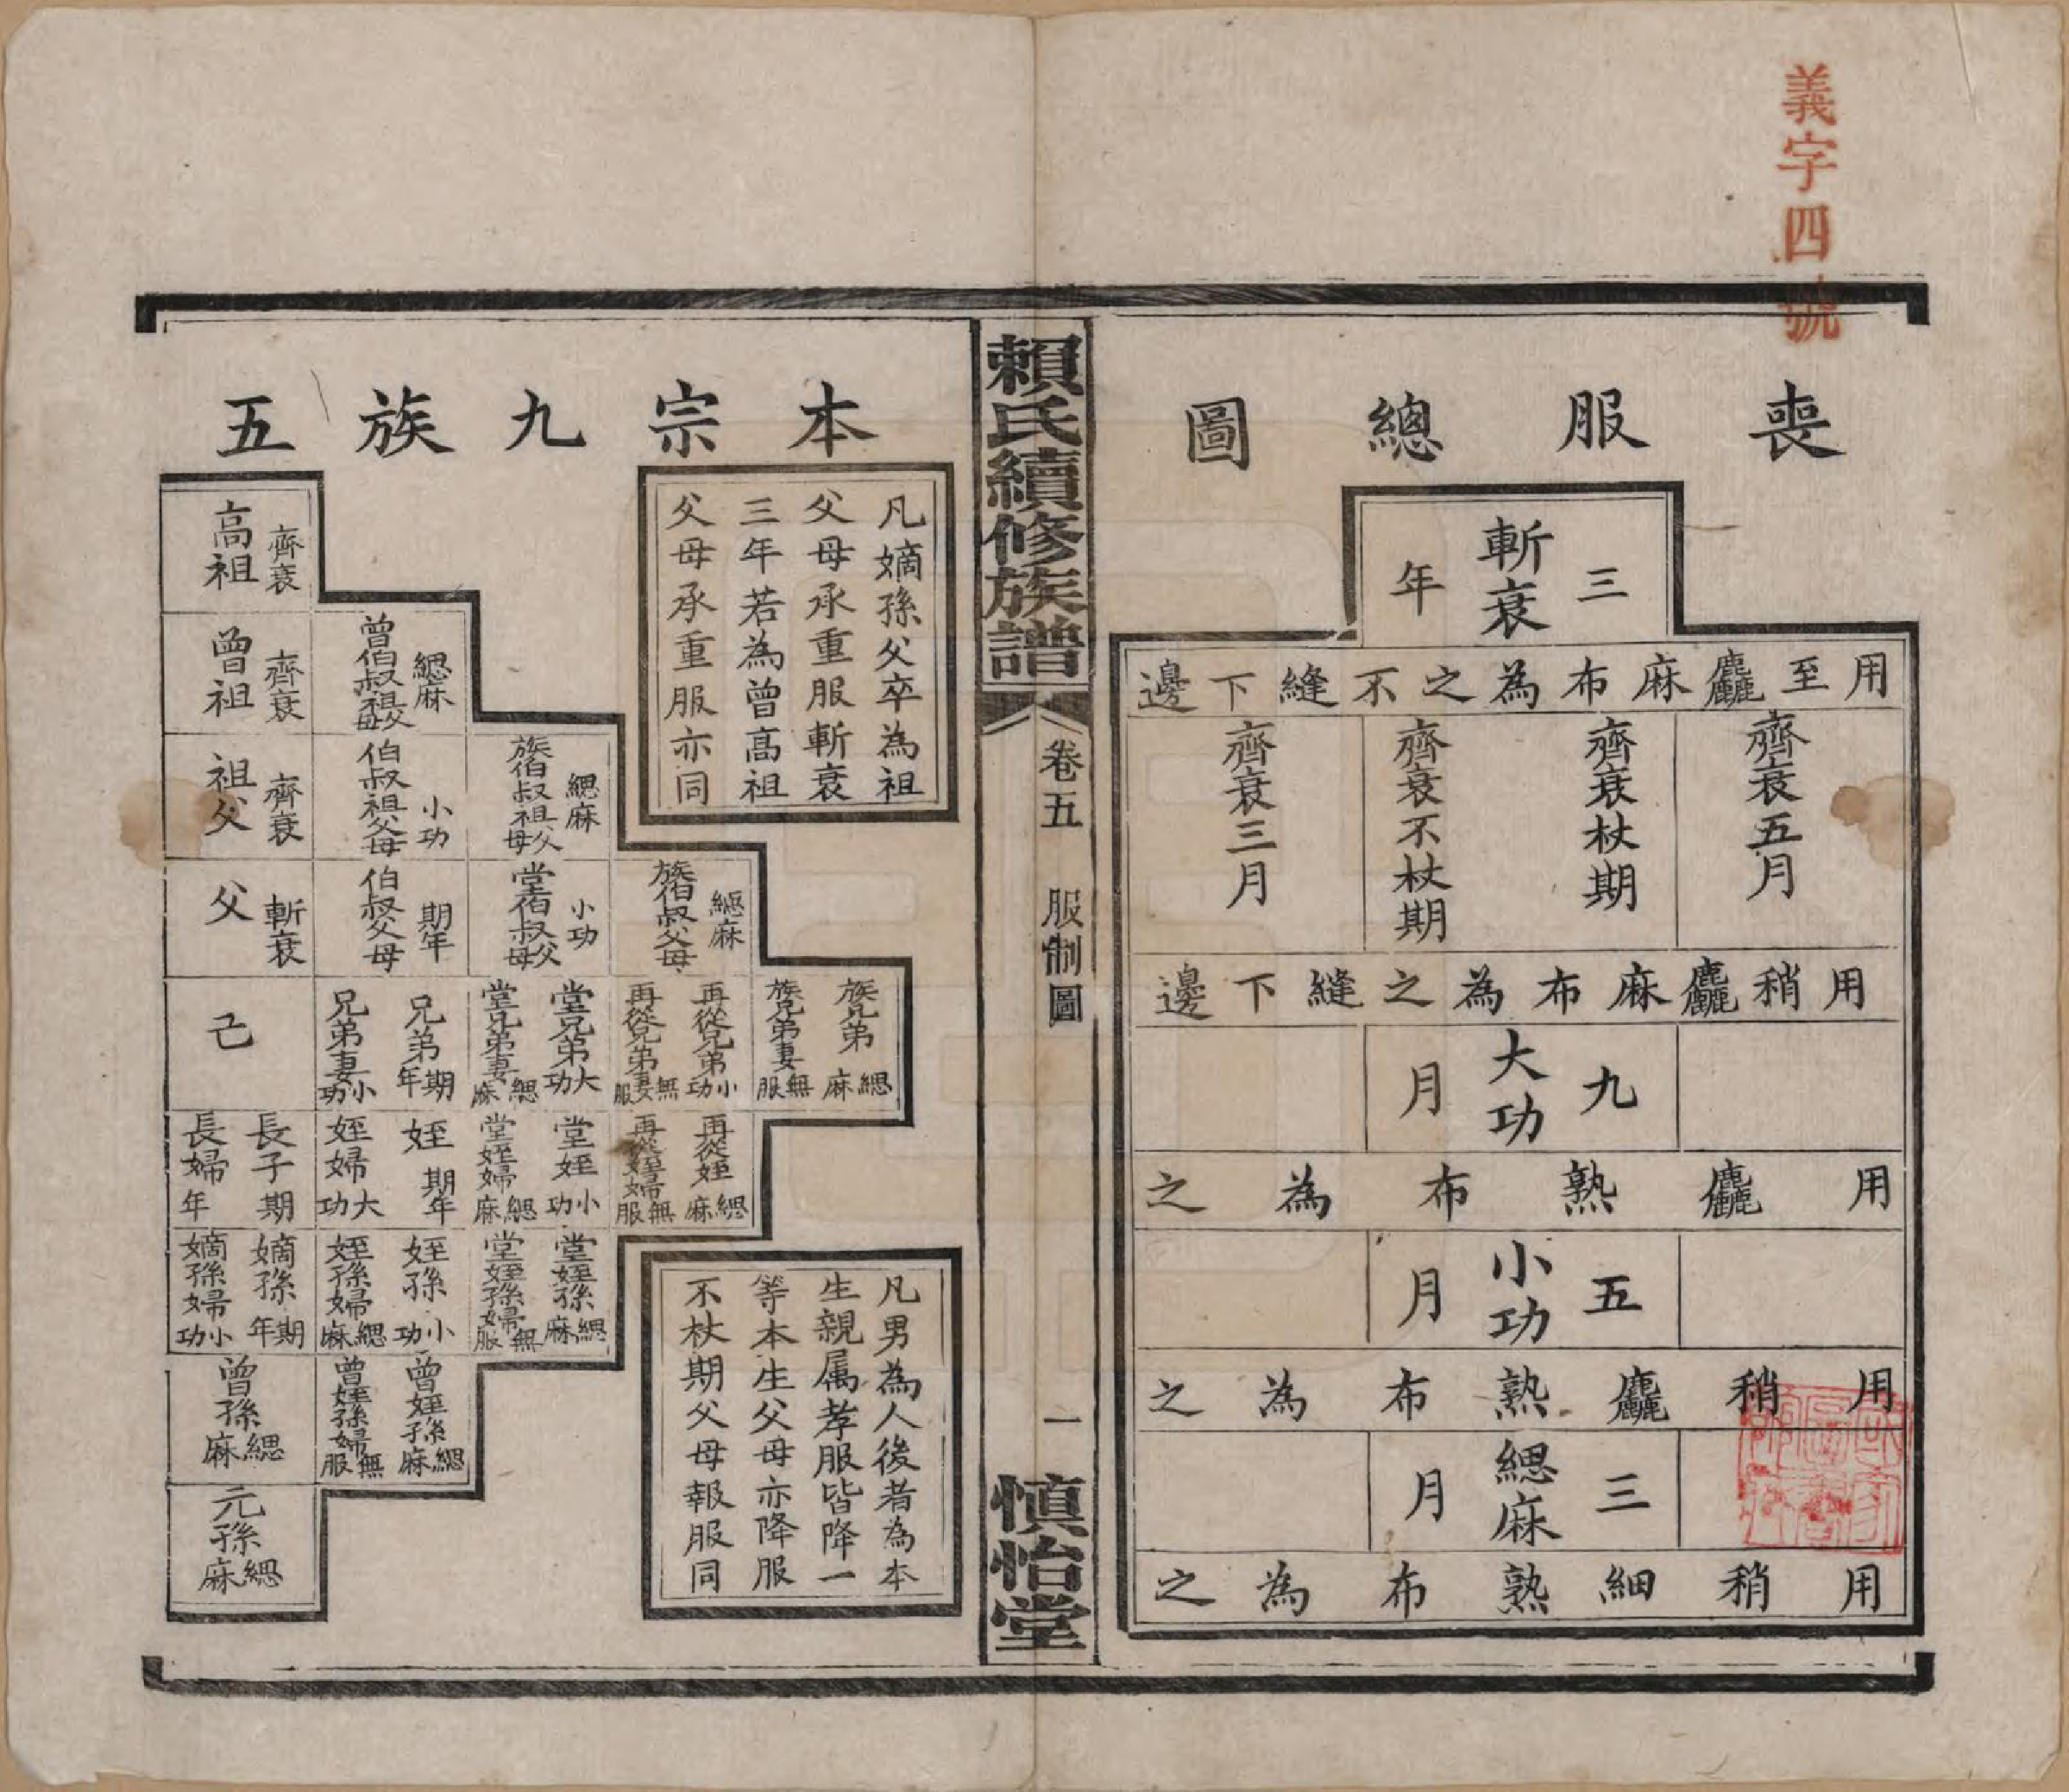 義字四號
喪服總圖
斬衰三年
用至麤麻布為之不縫下邊
齊衰五月
齊衰杖期
齊衰不杖期
齊衰三月
用稍麤麻布為之縫下邊
大功九月
用麤熟布為之
小功五月
用稍麤熟布為之
緦麻三月
用稍細熟布為之
賴氏續修族譜
卷五 服制圖
一
慎怡堂
本宗九族五
凡嫡孫父卒為祖
父母承重服斬衰
三年若為曾高祖
父母承重服亦同
高祖 齊衰
曾祖 齊衰
曾伯叔祖父母 緦麻
祖父 齊衰
伯叔祖父母 小功
族伯叔祖父母 緦麻
父 斬衰
伯叔父母 期年
堂伯叔父母 小功
族伯叔父母 緦麻
族兄弟 緦麻
族兄弟妻 無服
再從兄弟 小功
再從兄弟妻 無服
堂兄弟 大功
堂兄弟妻 緦麻
兄弟 期年
兄弟妻 小功
己
再從姪 緦麻
再從姪婦 無服
堂姪 小功
堂姪婦 緦麻
姪 期年
姪婦 大功
長子 期年
長婦
堂姪孫 緦麻
堂姪孫婦 無服
姪孫 小功
姪孫婦 緦麻
嫡孫 期年
嫡孫婦 小功
曾姪孫 緦麻
曾姪孫婦 無服
曾孫 緦麻
元孫 緦麻
凡男為人後者為本
生親属孝服皆降一
等本生父母亦降服
不杖期父母報服同